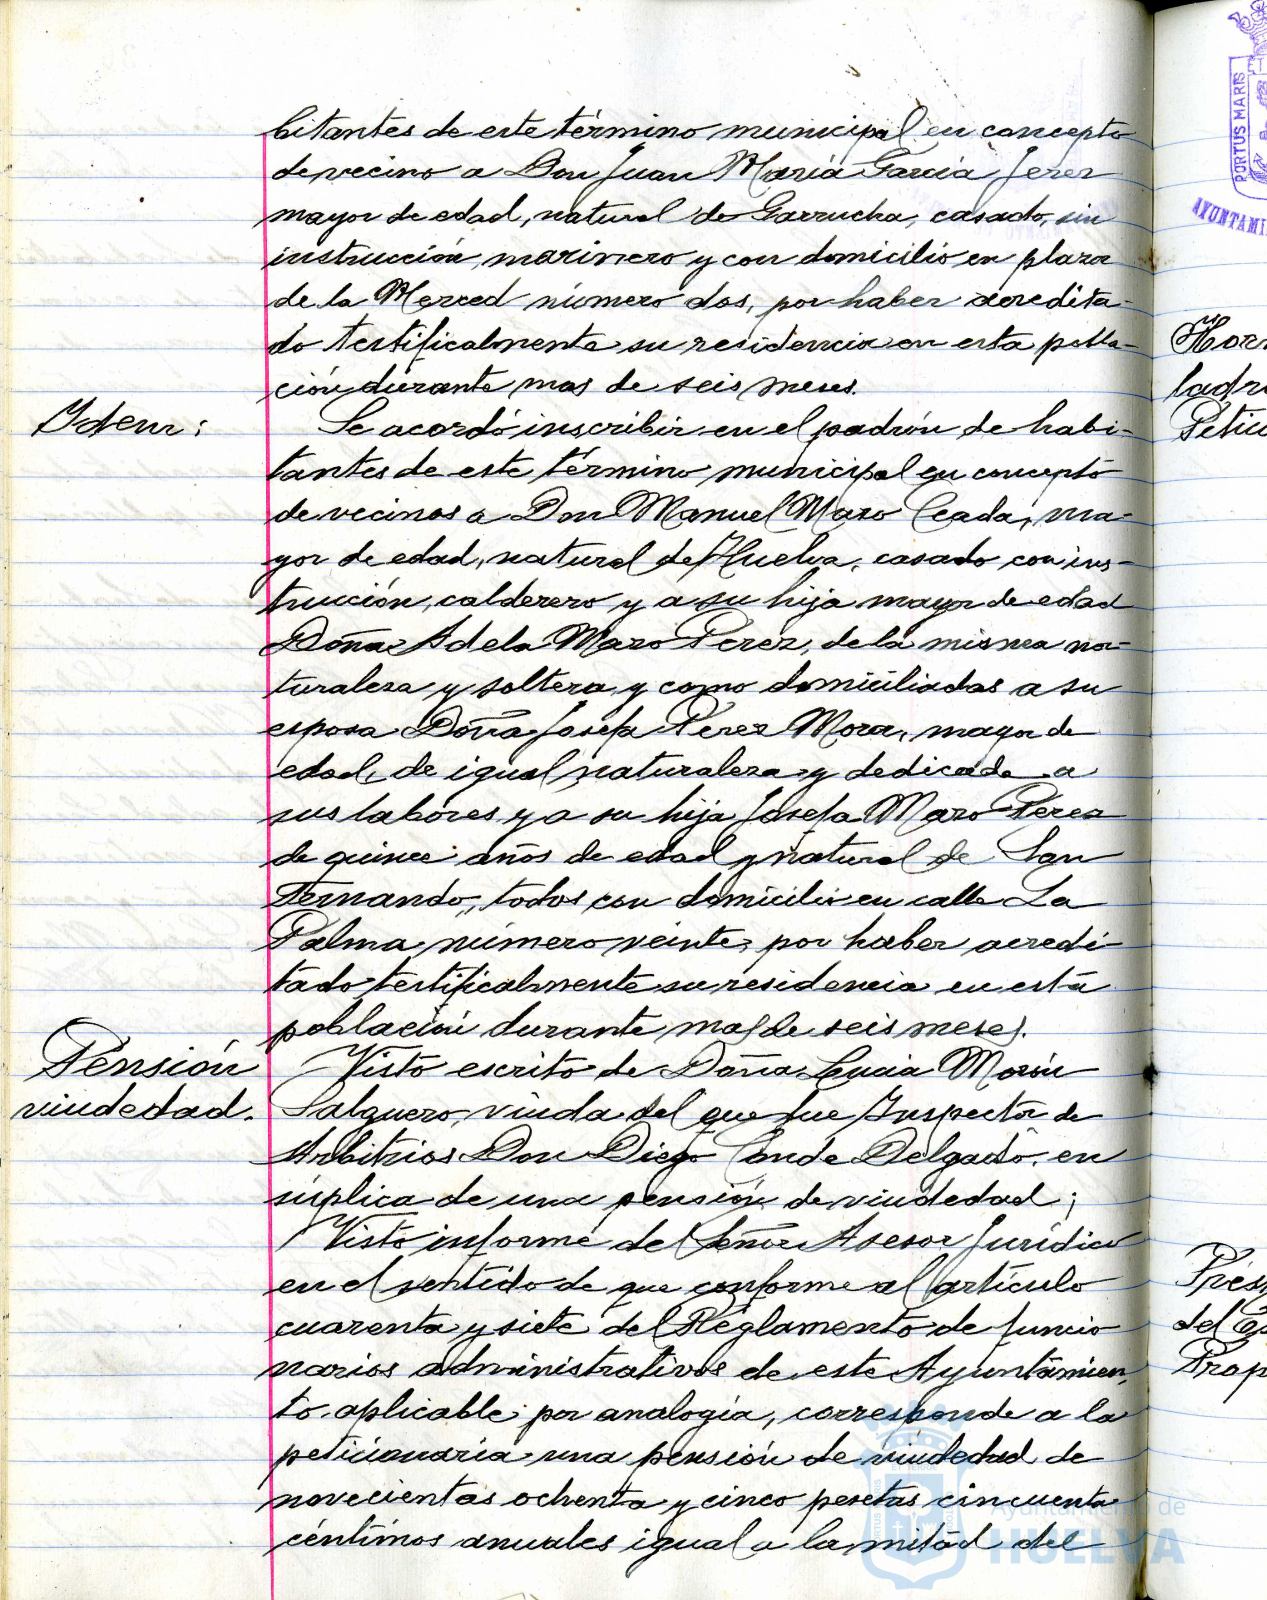 bitantes de este término municipal en concepto
de vecino a Don Juan María García Jerez
mayor de edad, natural de Garrucha, casado, sin
instrucción, marinero y con domicilio en plaza
de la Merced número dos, por haber acredita-
do testificalmente su residencia en esta pobla-
ción durante mas de seis meses.
Idem:
Se acordó inscribir en el padrón de habi-
tantes de este término municipal en concepto
de vecinos a Don Manuel Mazo Ceada, ma-
yor de edad, natural de Huelva, casado con ins-
trucción, calderero y a su hija mayor de edad
Doña Adela Mazo Perez, de la misma na-
turaleza y soltera y como domiciliadas a su
esposa Doña Josefa Perez Mora, mayor de
edad, de igual naturaleza y dedicada a
sus labores y a su hija Josefa Mazo Perez
de quince años de edad y natural de San
Fernando, todos con domicilio en calle La
Palma número veinte, por haber acredi-
tado testificalmente su residencia en esta
población durante mas de seis meses.
Pensión
viudedad.
Visto escrito de Doña Lucia Morón
Salguero, viuda del que fue Inspector de
Arbitrios Don Diego Conde Delgado, en
súplica de una pensión de viudedad;
Visto informe del Señor Asesor Jurídico
en el sentido de que conforme al artículo
cuarenta y siete del Reglamento de funcio
narios administrativos de este Ayuntamien-
to, aplicable por analogía, corresponde a la
peticionaria una pensión de viudedad de
novecientas ochenta y cinco pesetas cincuenta
céntimos anuales igual a la mitad del
PORTUS MARIS
AYUNTAMI
Petic
del
Prop
Ayuntamiento de
HUELVA